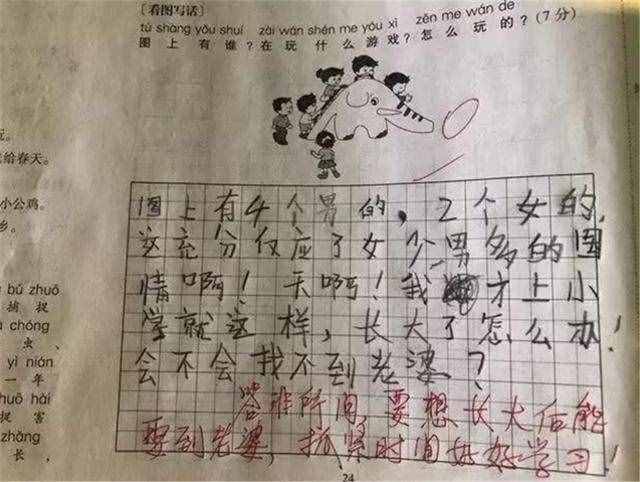 [看图写话]
tú shàng yǒu shuí zài wán shén me yóu xì zěn me wán de
图上有谁?在玩什么游戏?怎么玩的?(7分)
玩。
给春天。
小公鸡。
乡。
bǔ zhuō
捕捉
chóng
虫、
yì nián
一年
huō hài
捉害
zhǎng
长,
图上有4个男的,2个女的,
这充分仅应了女少男多的国
情啊!天啊!我才上小
学就这样,长大了怎么办!
会不会找不到老婆?
答非所问,要想长大后能
娶到老婆,抓紧时间好好学习!
24